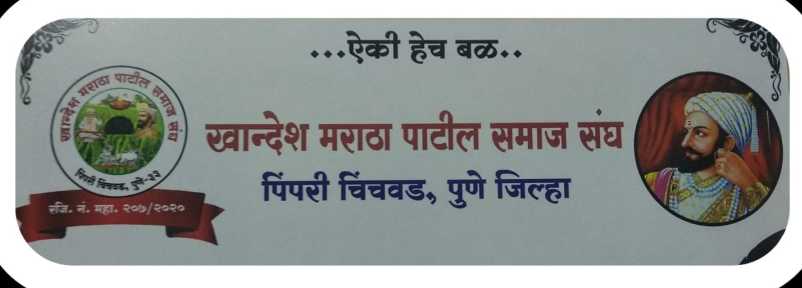 ...ऐकी हेच बळ..
खान्देश मराठा पाटील समाज संघ
पिंपरी चिंचवड, पुणे जिल्हा
खान्देश मराठा पाटील समाज संघ
पिंपरी चिंचवड, पुणे-३२
रजि. नं. महा. २०७/२०२०